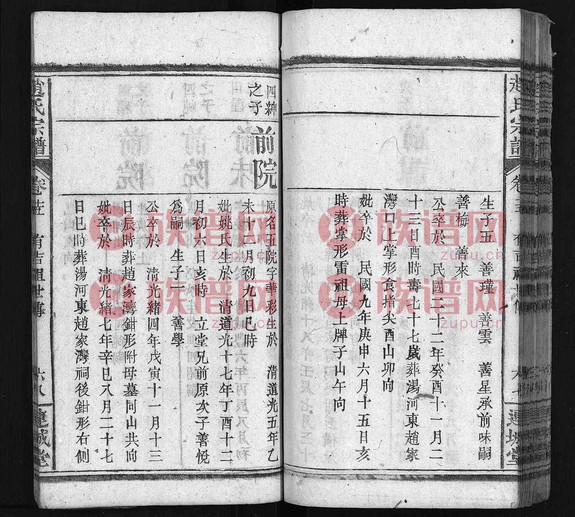 趙氏宗譜
卷三
生子五 善瑾 善雲 善星承前味嗣
善梅 善來
公卒於 民國二十二年癸酉十一月二
十三日酉時壽七十七歲葬湯河東趙家
灣口掌形食指尖酉山卯向
妣卒於 民國九年庚申六月十五日亥
時葬掌形雷祖母上牌子山午向
連城堂
四緯
之子
前院
原名五院字華彩生於 清道光五年乙
未十二月初九日巳時
妣姚氏生於 清道光十七年丁酉十二
月初六日亥時 立堂兄前原次子善悅
為嗣 生子一 善學
公卒於 清光緒四年戊寅十一月十三
日辰時葬趙家灣鉗形附母墓同山共向
妣卒於 清光緒七年辛巳八月二十七
日巳時葬湯河東趙家灣祠後鉗形右側
趙氏宗譜
有吉祖世傳
六八
連城堂
族谱网
zupu.cn
族谱网
zupu.cn